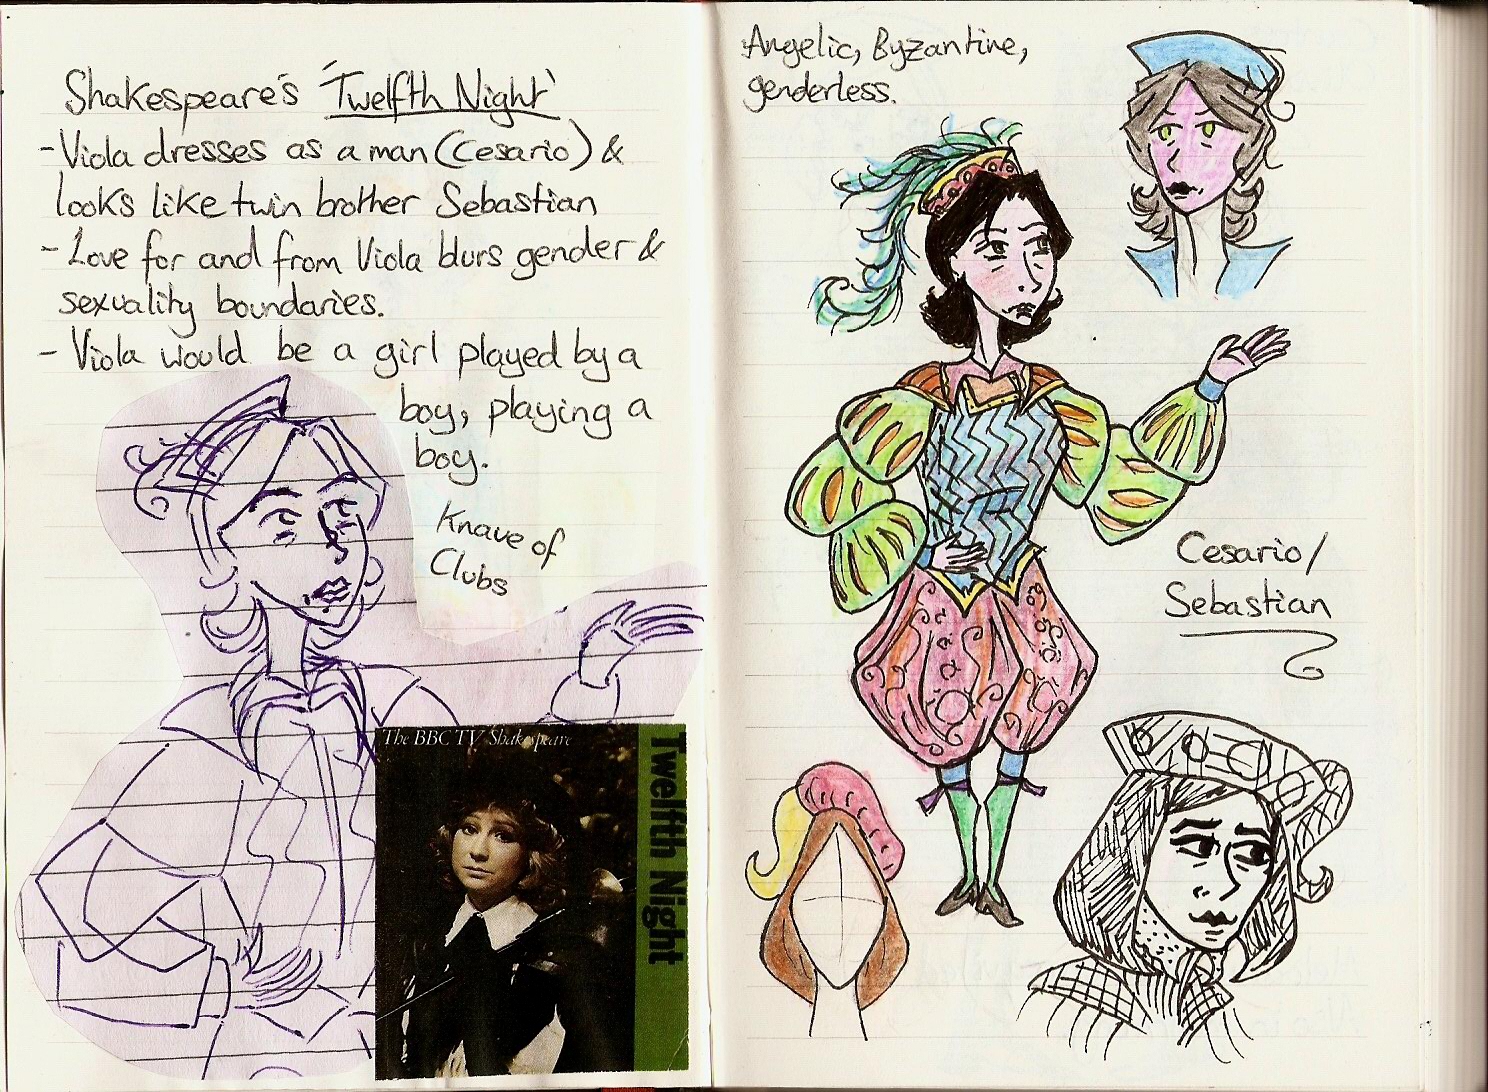 Shakespeare's 'Twelfth Night'
- Viola dresses as a man (Cesario) &
looks like twin brother Sebastian
- Love for and from Viola blurs gender &
sexuality boundaries.
- Viola would be a girl played by a
boy, playing a
boy.
Knave of
Clubs
The BBC TV Shakespeare
Twelfth Night
Angelic, Byzantine,
genderless.
Cesario/
Sebastian